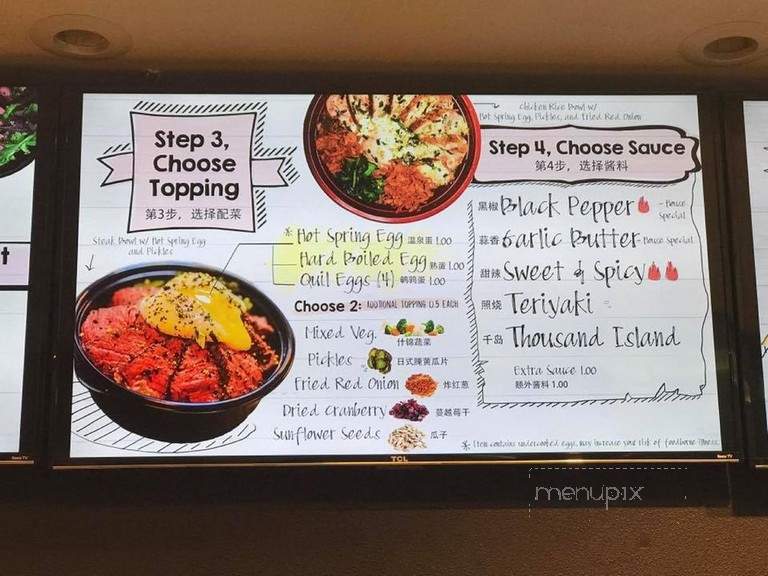 Step 3,
Choose
Topping
第3步，选择配菜
Steak Bowl w/ Hot Spring Egg
and Pickles
*Hot Spring Egg 温泉蛋 1.00
Hard Boiled Egg 熟蛋 1.00
Quil Eggs (4) 鹌鹑蛋 1.00
Choose 2: ADDTIONAL TOPPING 0.5 EACH
Mixed Veg.
什锦蔬菜
Pickles 日式腌黄瓜片
Fried Red Onion 炸红葱
Dried Cranberry 蔓越莓干
Sunflower Seeds 瓜子
Chicken Rice Bowl w/
Hot Spring Egg, Pickles, and Fried Red Onion
Step 4, Choose Sauce
第4步，选择酱料
黑椒 Black Pepper - House Special
蒜香 Garlic Butter - House Special
甜辣 Sweet & Spicy
照烧 Teriyaki
千岛 Thousand Island
Extra Sauce 1.00
额外酱料 1.00
*Item contains undercooked eggs, may increase your risk of foodborne illness.
TCL
Roku TV
Roku TV
menupix